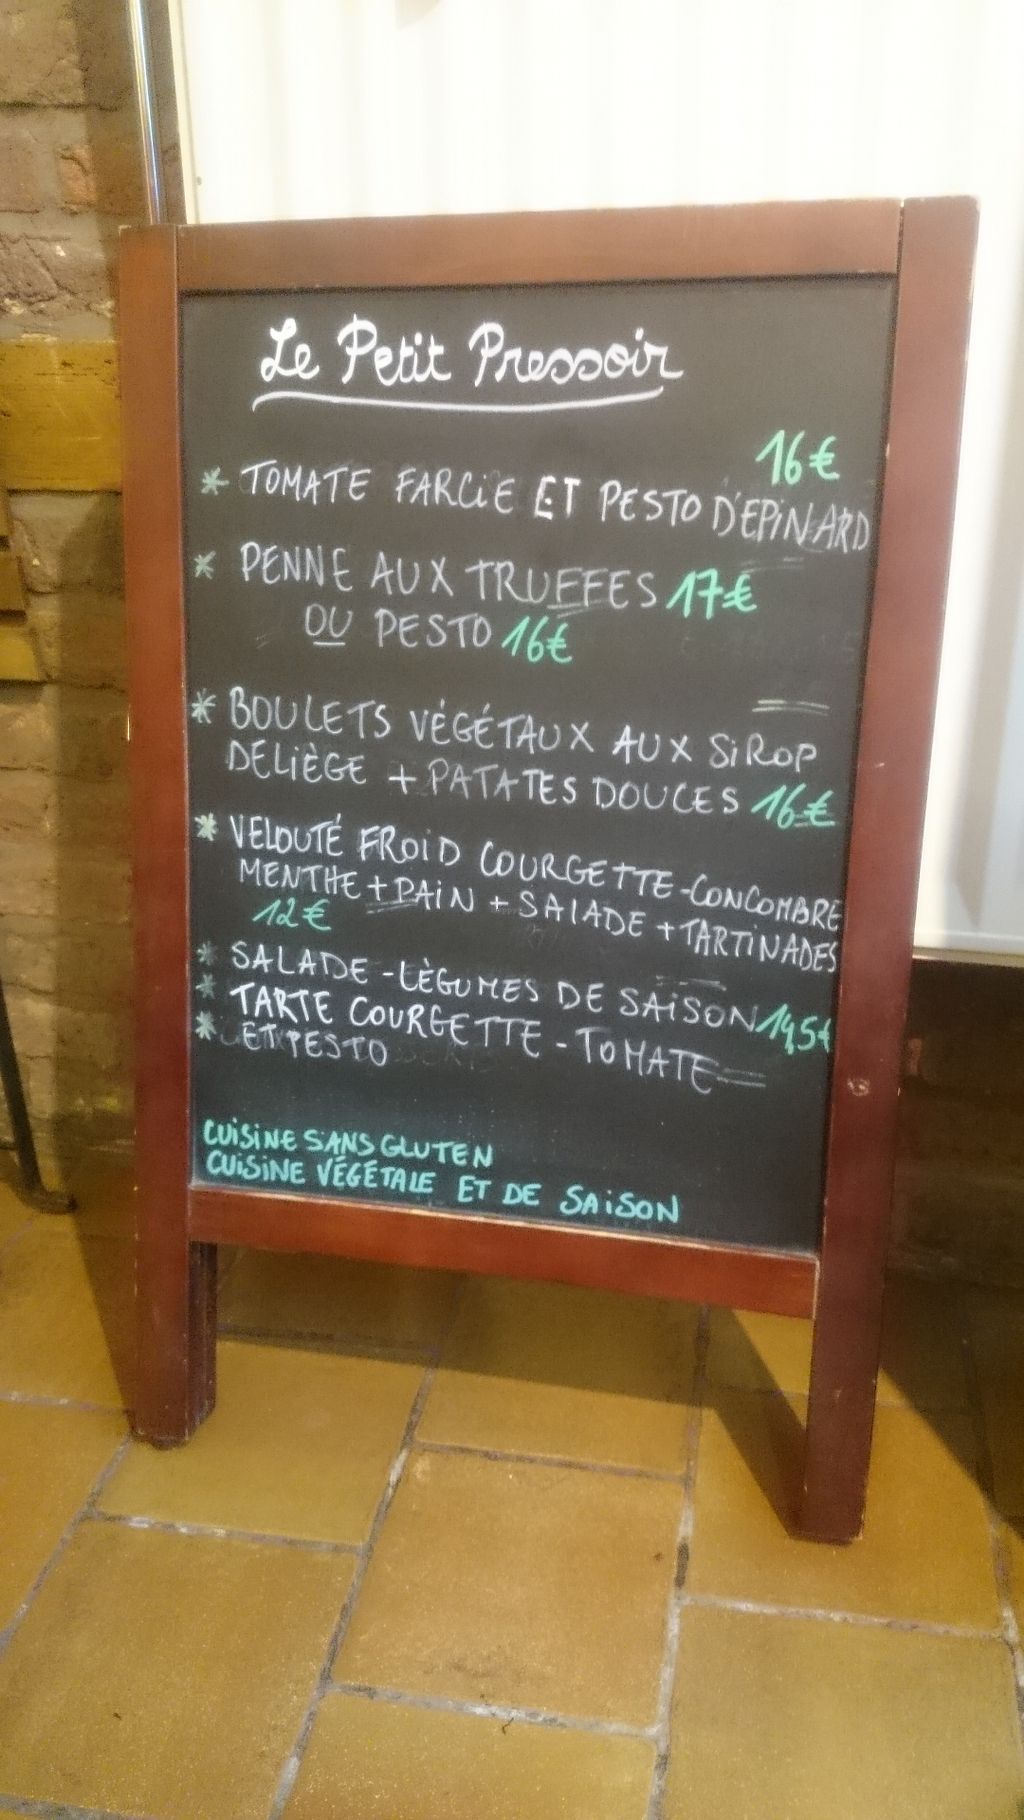 Le Petit Pressoir
16€
* TOMATE FARCIE ET PESTO D'EPINARD
* PENNE AUX TRUFFES 17€
OU PESTO 16€
* BOULETS VÉGÉTAUX AUX SIROP
DE LIÈGE + PATATES DOUCES 16€
* VELOUTÉ FROID COURGETTE-CONCOMBRE
MENTHE + PAIN + SALADE + TARTINADES
12€
* SALADE - LÈGUMES DE SAISON 14,5€
* TARTE COURGETTE - TOMATE
* ET PESTO
CUISINE SANS GLUTEN
CUISINE VÉGÉTALE ET DE SAISON